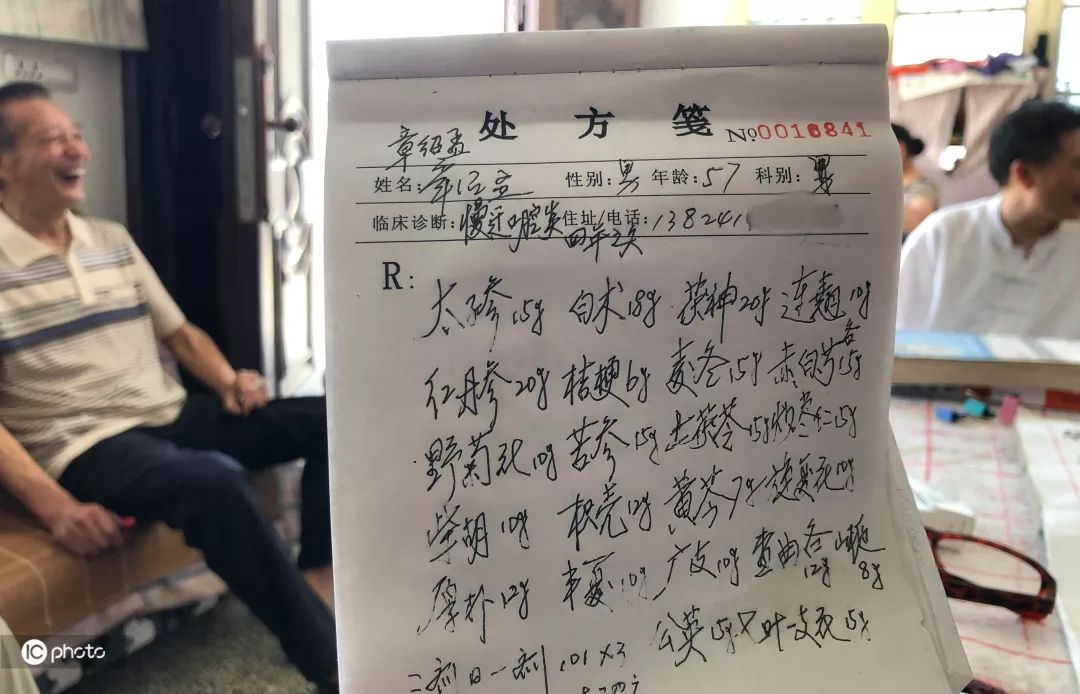 处 方 笺 No 0016841
章绍孟
姓名: 性别: 男 年龄: 57 科别:
临床诊断: 慢过 腔炎 住址/电话: 138241
R:
太子参15g 白术18g 茯神20g 连翘10g
红丹参20g 桔梗6g 麦冬15g 赤白芍各15g
野菊花10g 苦参15g 土茯苓15g 炒枣仁15g
柴胡10g 枳壳12g 黄芩7g 旋复花10g
厚朴12g 半夏10g 广皮10g 查曲各12g 8g
公英15g 叶一支花15g
二剂 日一剂
IC photo